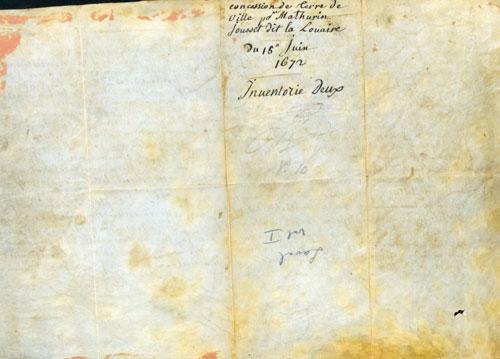 concession de terre de
Ville pr Mathurin
Jousset dit la Louaire
Du 18e Juin
1672
Inventorie Deux
Laval
vol I